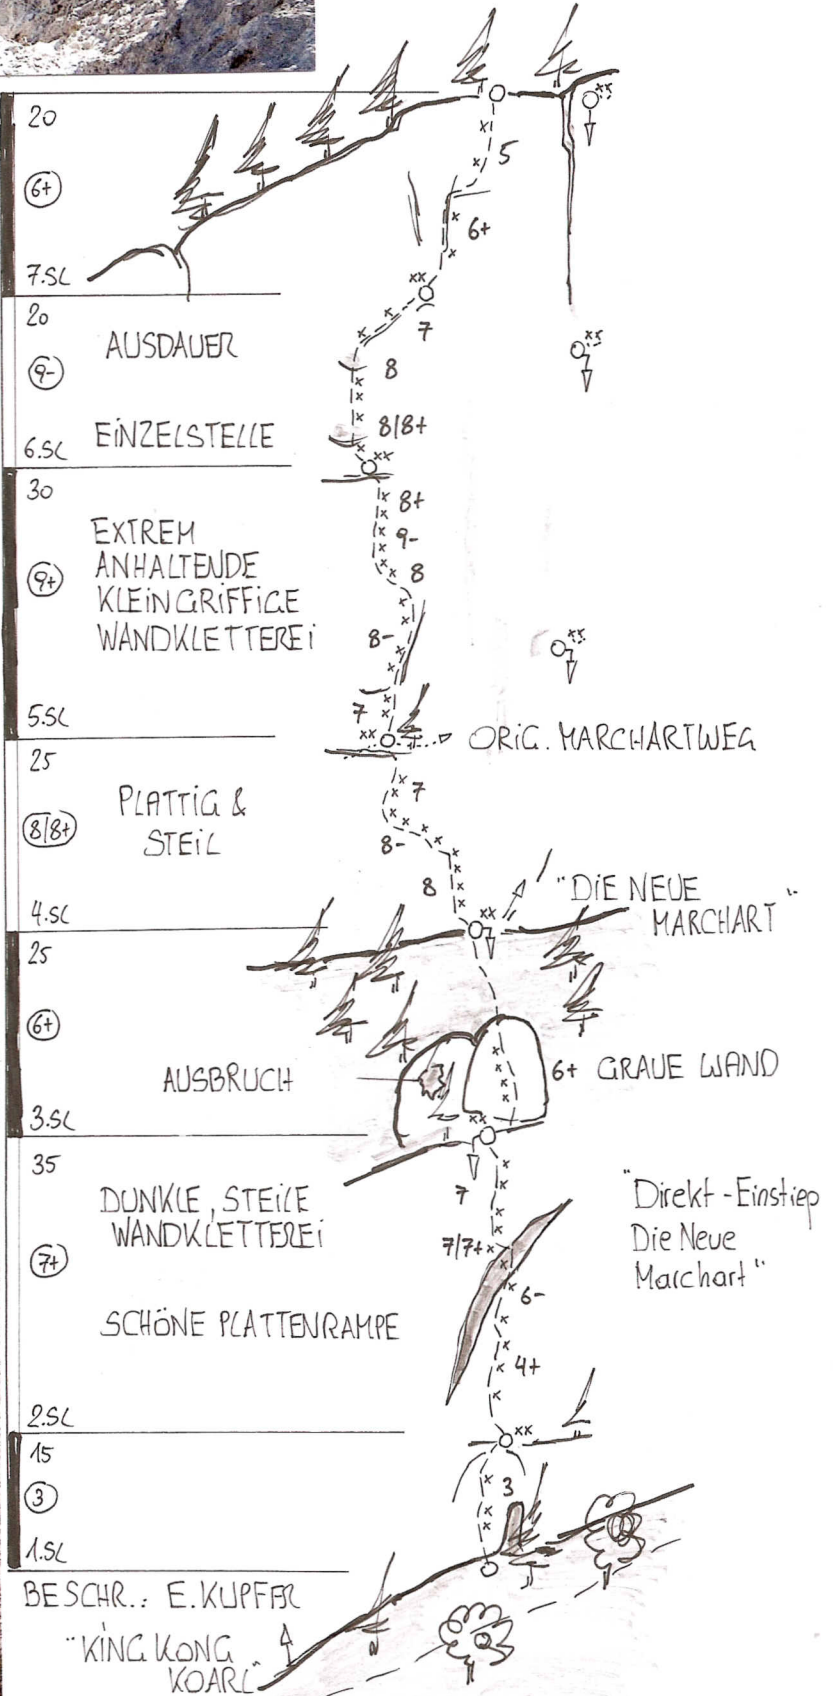 20
6+
7.SL
5
6+
20
AUSDAUER
9-
EINZELSTELLE
6.SL
7
8
8/8+
30
EXTREM
ANHALTENDE
KLEINGRIFFIGE
WANDKLETTEREI
9+
5.SL
8+
9-
8
8-
7
ORIG. MARCHARTWEG
25
PLATTIG &
STEIL
8/8+
4.SL
7
8-
8
"DIE NEUE
MARCHART"
25
6+
AUSBRUCH
3.SL
6+ GRAUE WAND
35
DUNKLE, STEILE
WANDKLETTEREI
7+
SCHÖNE PLATTENRAMPE
2.SL
7
7/7+
6-
4+
"Direkt-Einstieg
Die Neue
Marchart"
15
3
1.SL
3
BESCHR.: E. KUPFER
"KING KONG
KOARL"